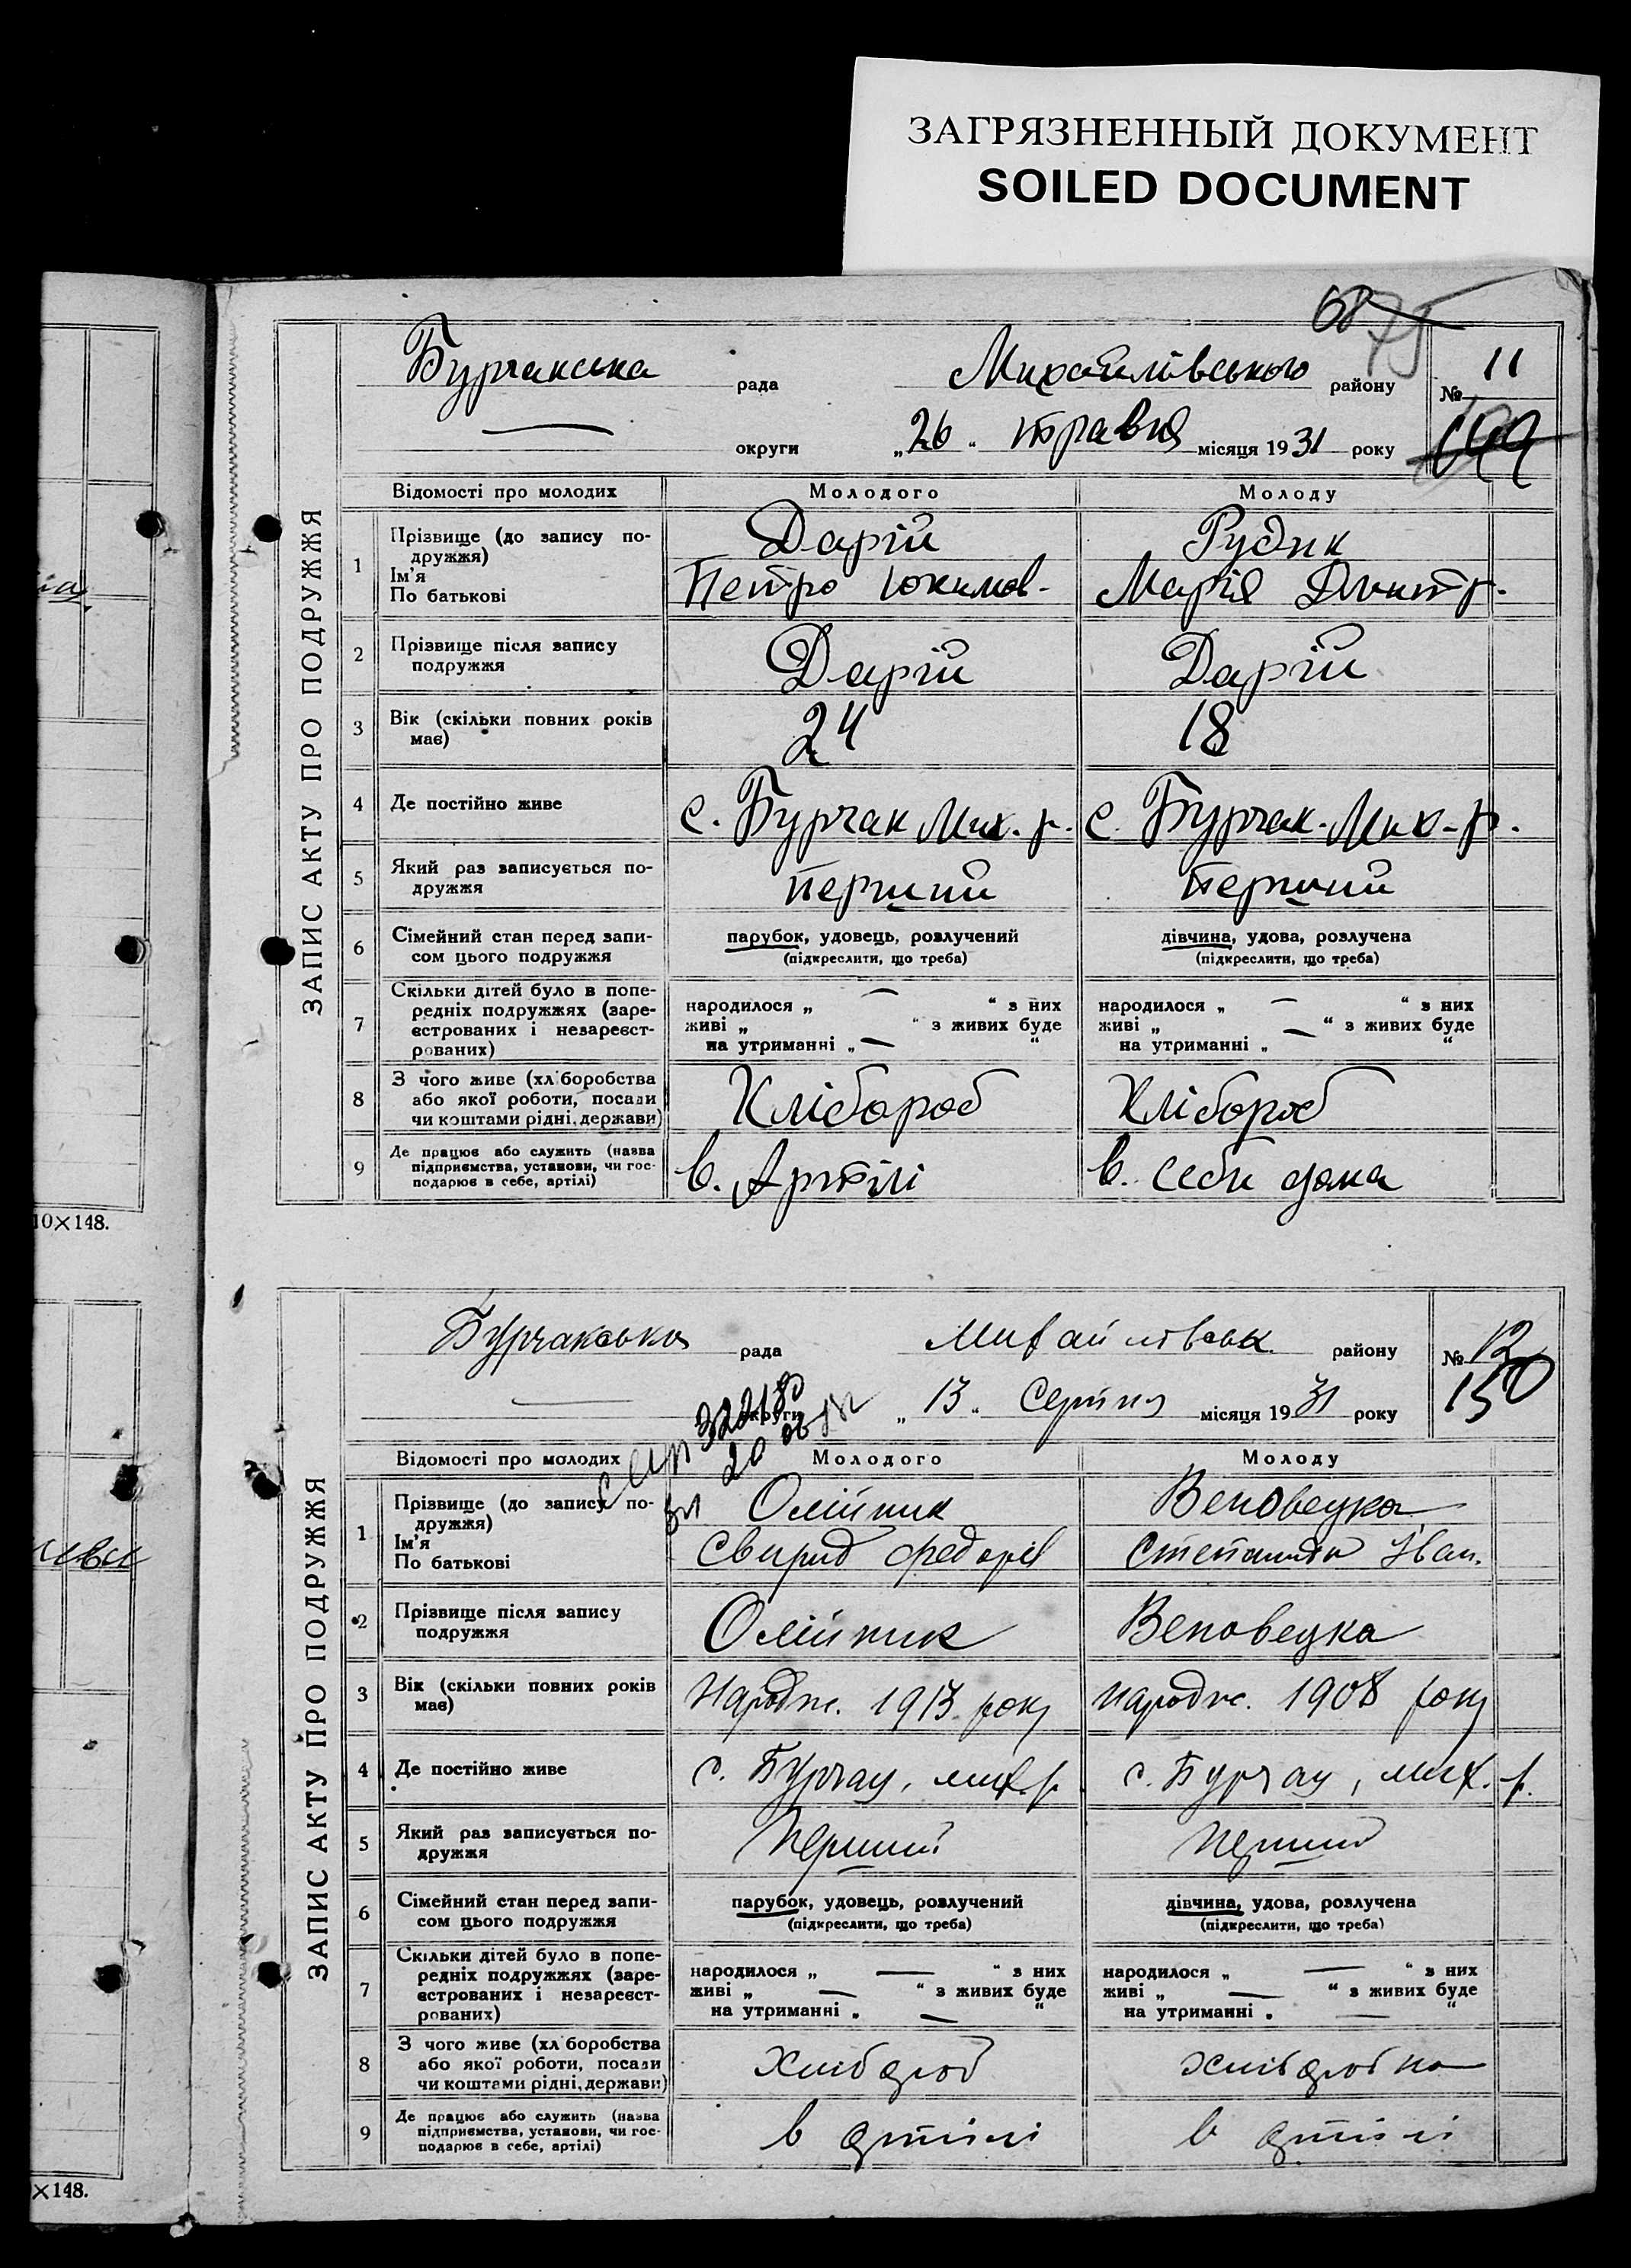 ЗАГРЯЗНЕННЫЙ ДОКУМЕНТ
SOILED DOCUMENT
68 75
ЗАПИС АКТУ ПРО ПОДРУЖЖЯ
Бурчакська рада Михайлівського району № 11
округи „26“ травня місяця 1931 року 149
Відомості про молодих Молодого Молоду
1 Прізвище (до запису по-
дружжя) Дарій Рудик
Ім'я
По батькові Петро Юхимов- Марія Дмитр.
2 Прізвище після запису
подружжя Дарій Дарій
3 Вік (скільки повних років
має) 24 18
4 Де постійно живе с. Бурчак Мих. р. с. Бурчак. Мих-р.
5 Який раз записується по-
дружжя перший перший
6 Сімейний стан перед запи-
сом цього подружжя парубок, удовець, розлучений дівчина, удова, розлучена
(підкреслити, що треба) (підкреслити, що треба)
7 Скільки дітей було в попе-
редніх подружжях (заре-
єстрованих і незареєст-
рованих) народилося „ — “ з них народилося „ — “ з них
живі „ “ з живих буде живі „ “ з живих буде
на утриманні „ — “ на утриманні „ — “
8 З чого живе (хліборобства
або якої роботи, посади
чи коштами рідні, держави) Хлібороб Хлібороб
9 Де працює або служить (назва
підприємства, установи, чи гос-
подарює в себе, артілі) в. Артілі в. себи дома
10×148.
ЗАПИС АКТУ ПРО ПОДРУЖЖЯ
Бурчакська рада Михайлівськ. району № 12
округи „13“ Серпня місяця 1931 року 150
Відомості про молодих Молодого Молоду
1 Прізвище (до запису по-
дружжя) Олійник
Ім'я
По батькові Свирид Федорів Степанида Іван.
2 Прізвище після запису
подружжя Олійник
3 Вік (скільки повних років
має) Народж. 1913 року народж. 1908 року
4 Де постійно живе с. Бурчак, мих. р. с. Бурчак, мих. р.
5 Який раз записується по-
дружжя перший перший
6 Сімейний стан перед запи-
сом цього подружжя парубок, удовець, розлучений дівчина, удова, розлучена
(підкреслити, що треба) (підкреслити, що треба)
7 Скільки дітей було в попе-
редніх подружжях (заре-
єстрованих і незареєст-
рованих) народилося „ — “ з них народилося „ — “ з них
живі „ — “ з живих буде живі „ — “ з живих буде
на утриманні „ — “ на утриманні „ — “
8 З чого живе (хліборобства
або якої роботи, посади
чи коштами рідні, держави) хлібороб хліборобка
9 Де працює або служить (назва
підприємства, установи, чи гос-
подарює в себе, артілі) в артілі в артілі
×148.